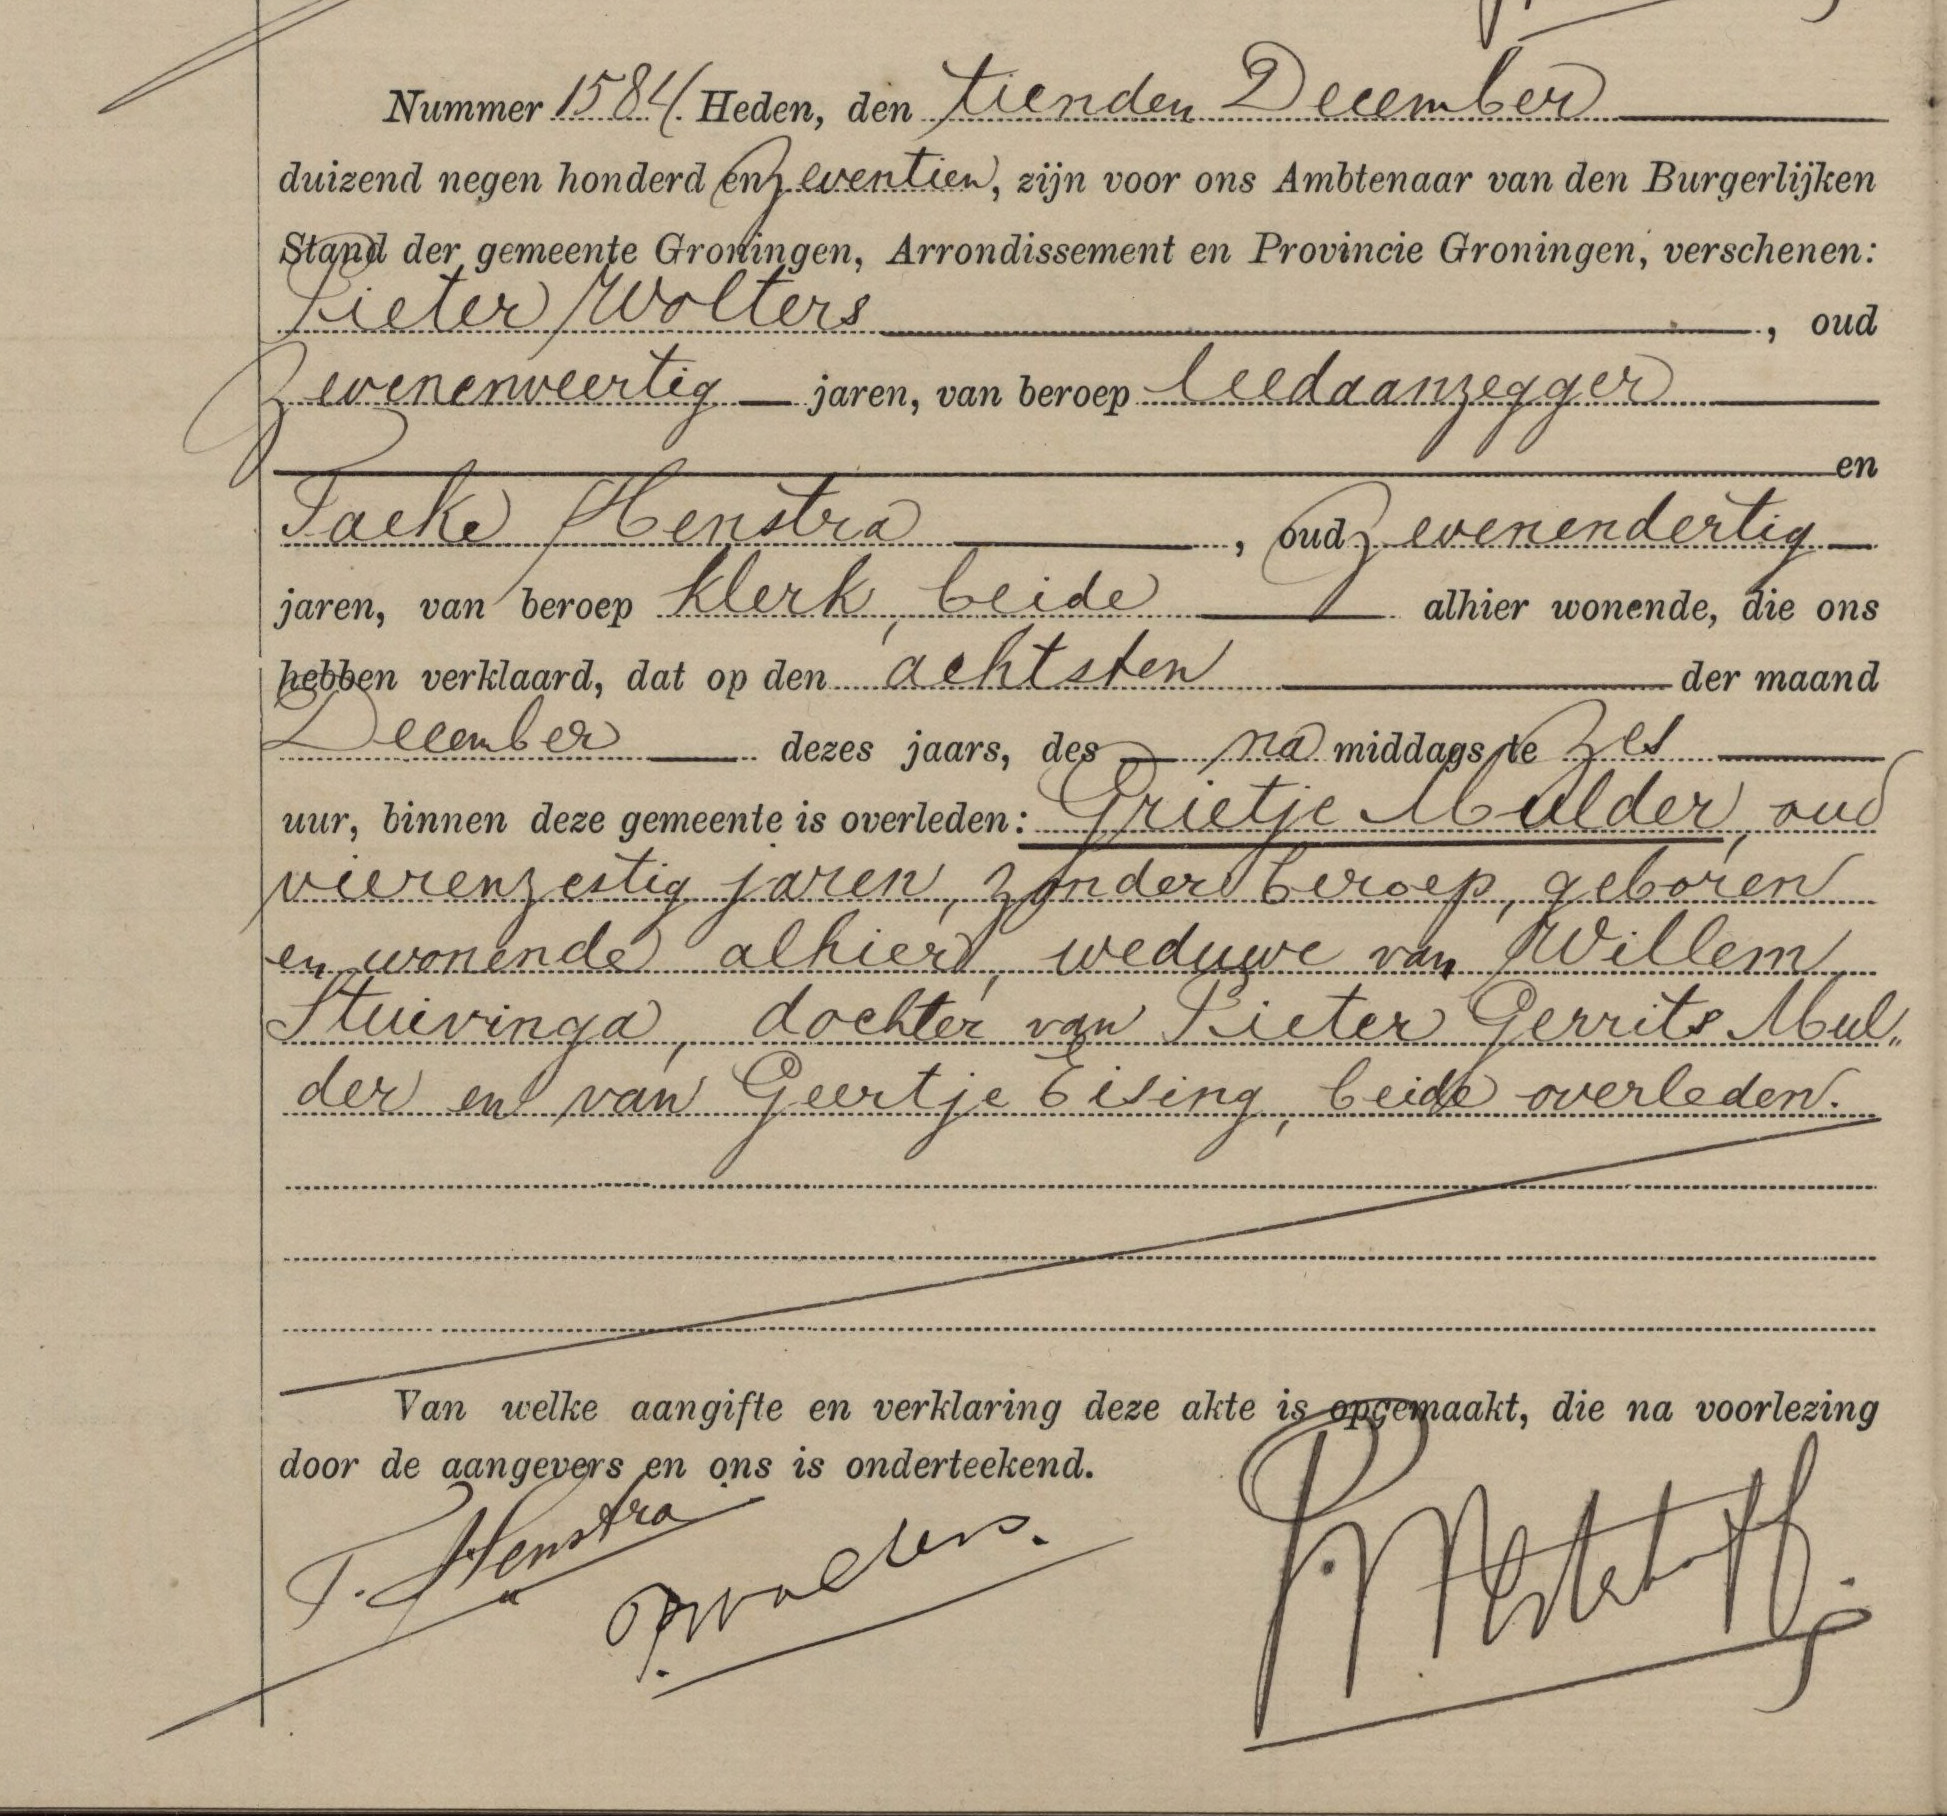 Nummer 1584. Heden, den tienden December
duizend negen honderd en zeventien, zijn voor ons Ambtenaar van den Burgerlijken
Stand der gemeente Groningen, Arrondissement en Provincie Groningen, verschenen:
Pieter Wolters, oud
zevenenveertig jaren, van beroep leedaanzegger
en
Taeke Henstra, oud zevenendertig
jaren, van beroep klerk, beide alhier wonende, die ons
hebben verklaard, dat op den achtsten der maand
December dezes jaars, des na middags te zes
uur, binnen deze gemeente is overleden: Grietje Mulder, oud
vierenzestig jaren, zonder beroep, geboren
en wonende alhier, weduwe van Willem
Stuivinga, dochter van Pieter Gerrits Mul„
der en van Geertje Eising, beide overleden.
Van welke aangifte en verklaring deze akte is opgemaakt, die na voorlezing
door de aangevers en ons is onderteekend.
T. Henstra
P. Wolters.